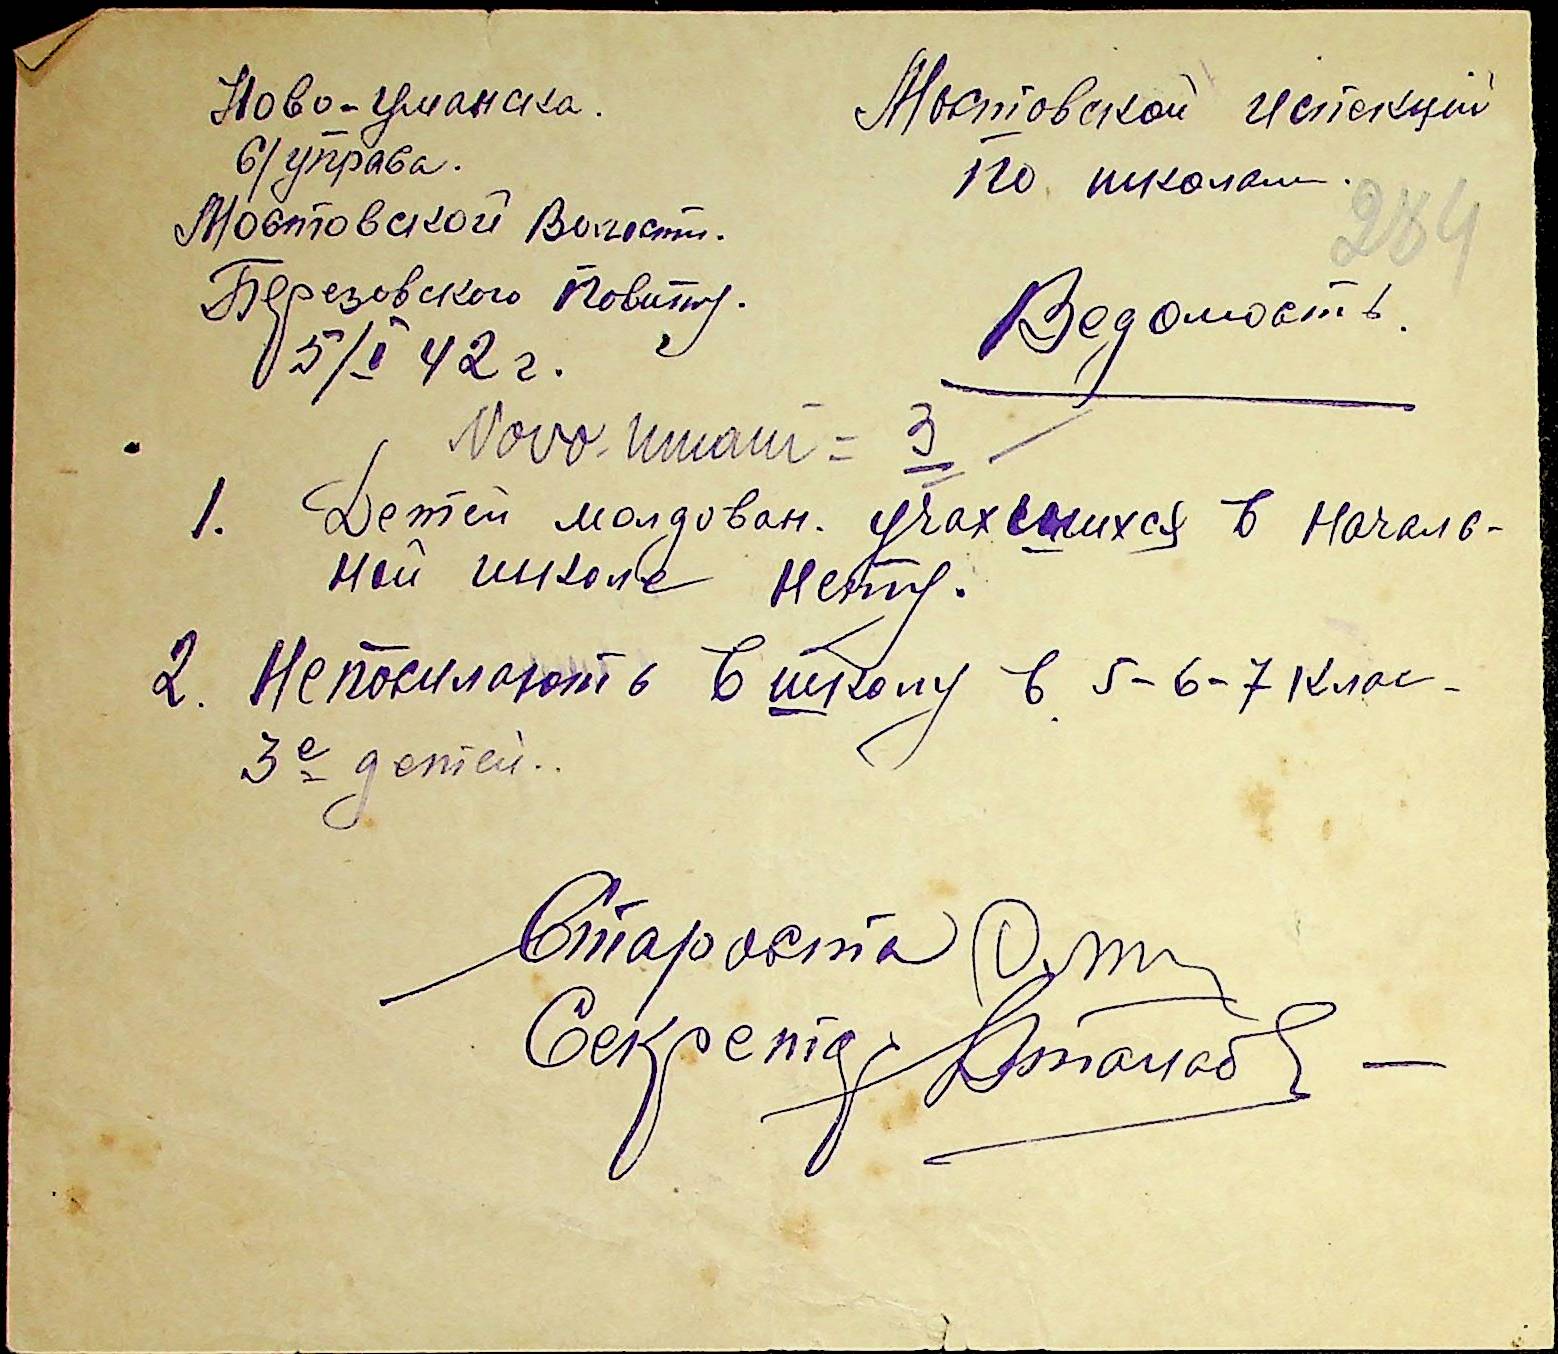 Ново-Уманска.
с/управа.
Мостовской Волости.
Березовского Повиту.
5/I 42 г.
Мостовской испекций
По школам.
284
Ведомость.
Novo-Umani = 3
1. Детей молдован. учахсшихся в началь-
ной школе нету.
2. Непосилають в школу в 5-6-7 клас-
3е детей..
Староста
Секретар